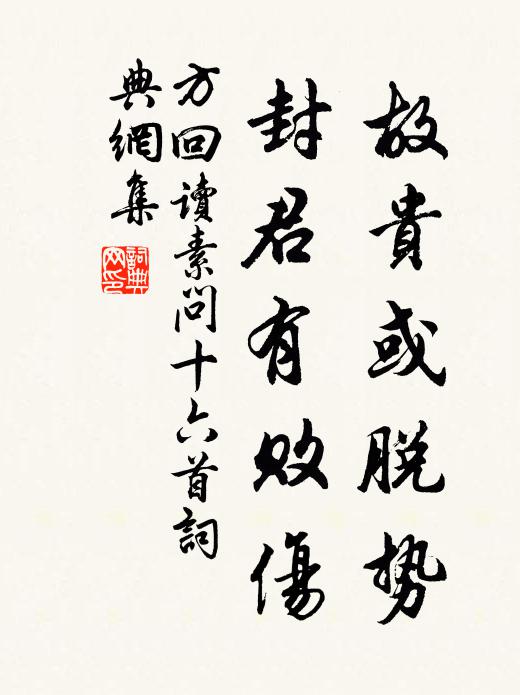 故貴或脱勢
封君有敗傷
方回讀素問十六首詞
典網集
詞典
网印